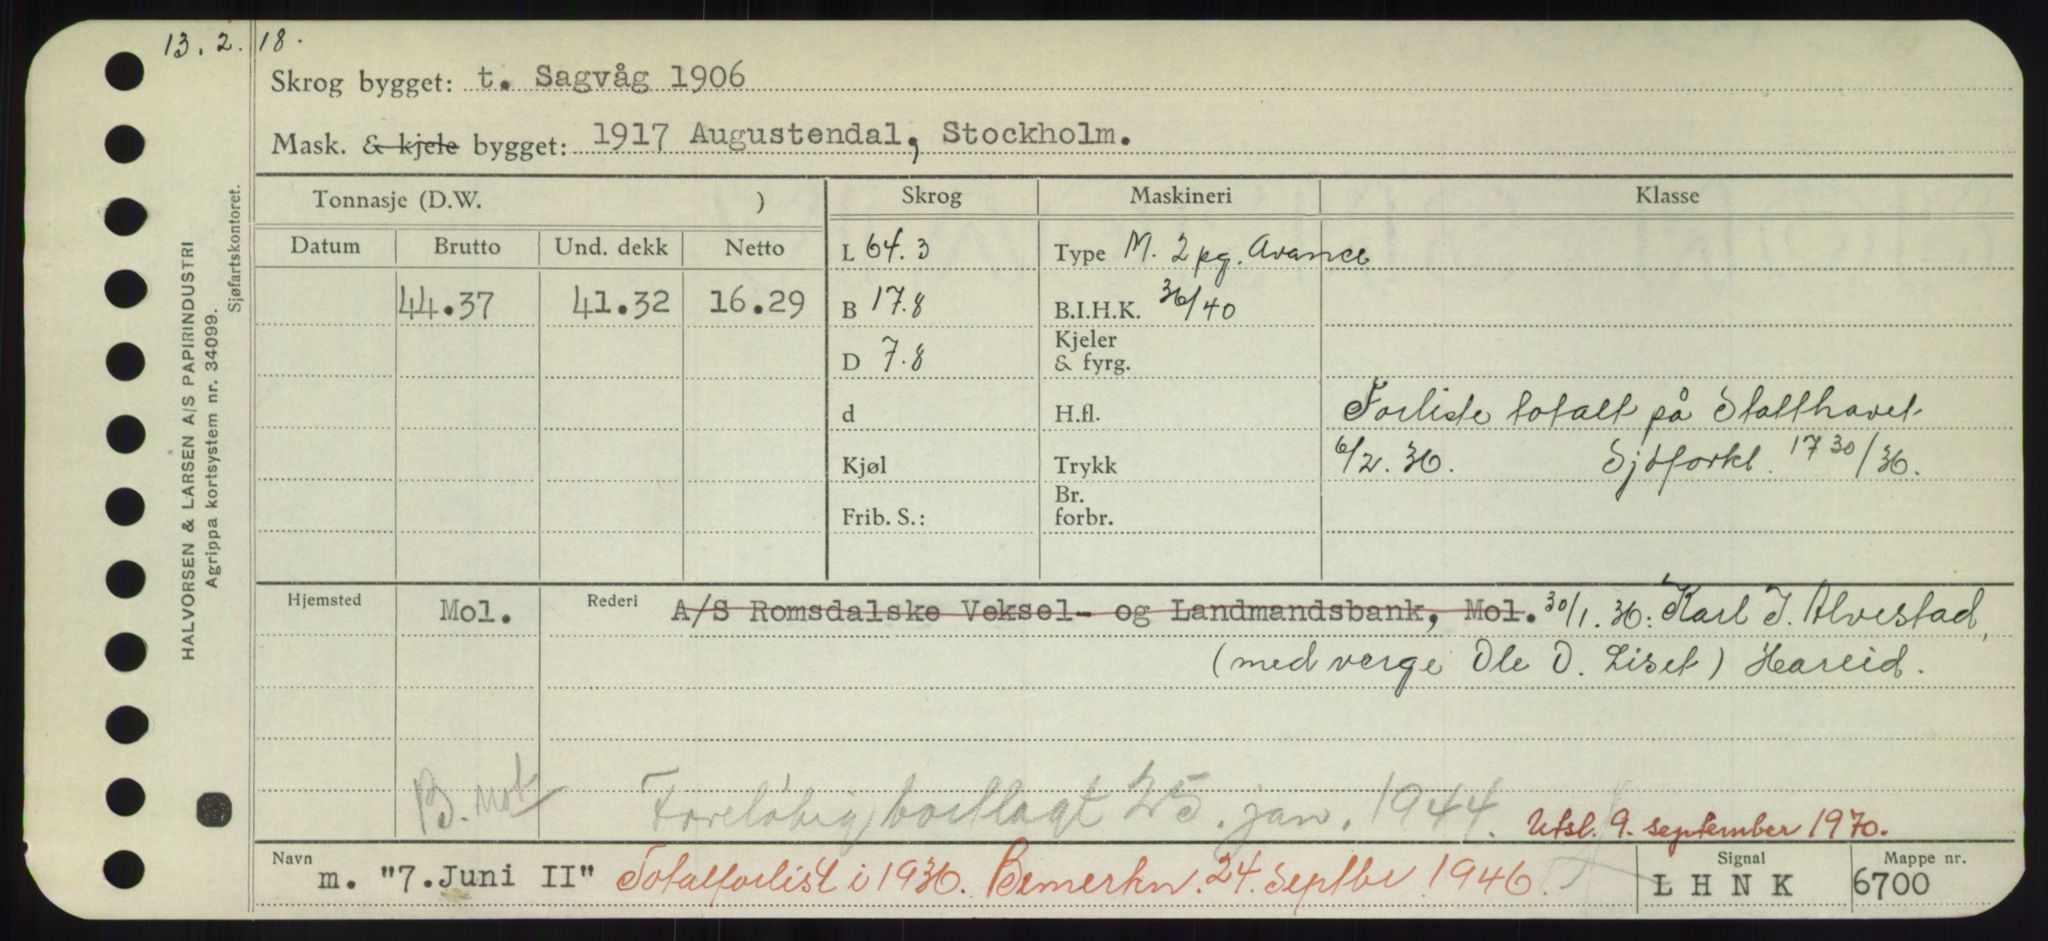 13.2.18.
Skrog bygget: t. Sagvåg 1906
Mask. & kjele bygget: 1917 Augustendal, Stockholm.
HALVORSEN & LARSEN A/S PAPIRINDUSTRI
Agrippa kortsystem nr. 34099.
Sjøfartskontoret.
Tonnasje (D.W. ) Skrog Maskineri Klasse
Datum Brutto Und. dekk Netto L 64.3 Type M. 2 pg. Avance
44.37 41.32 16.29 B 17.8 B.I.H.K. 36/40
D 7.8 Kjeler
& fyrg.
d H.fl. Forliste totalt på Statthavet
Kjøl Trykk 6/2.36. Sjøforkl. 17 30/36.
Frib. S.: Br.
forbr.
Hjemsted Mol. Rederi A/S Romsdalske Veksel- og Landmandsbank, Mol. 30/1.36: Karl I. Alvestad,
(med verge Ole O. Liset) Hareid.
B. not Foreløbig bortlagt 25. jan. 1944. Utsl. 9. september 1970.
Navn m. "7.Juni II" Totalforlist i 1936. Bemerkn. 24. septbr 1946. Signal L H N K Mappe nr. 6700